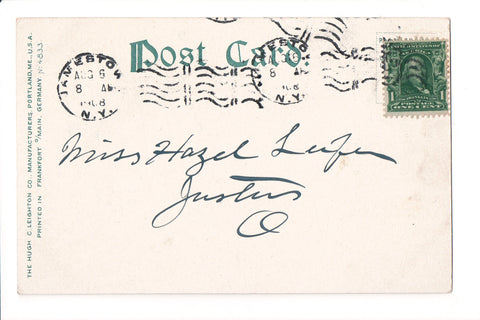 Post Card.
JAMESTOWN
AUG 6
8 AM
1908
N.Y.
AUG 6
8 AM
1908
N.Y.
POSTAGE
ONE CENT
Miss Hazel Leifer
Justus
O
THE HUGH C. LEIGHTON CO., MANUFACTURERS, PORTLAND, ME., U.S.A.
PRINTED IN FRANKFORT O/MAIN, GERMANY No 4833